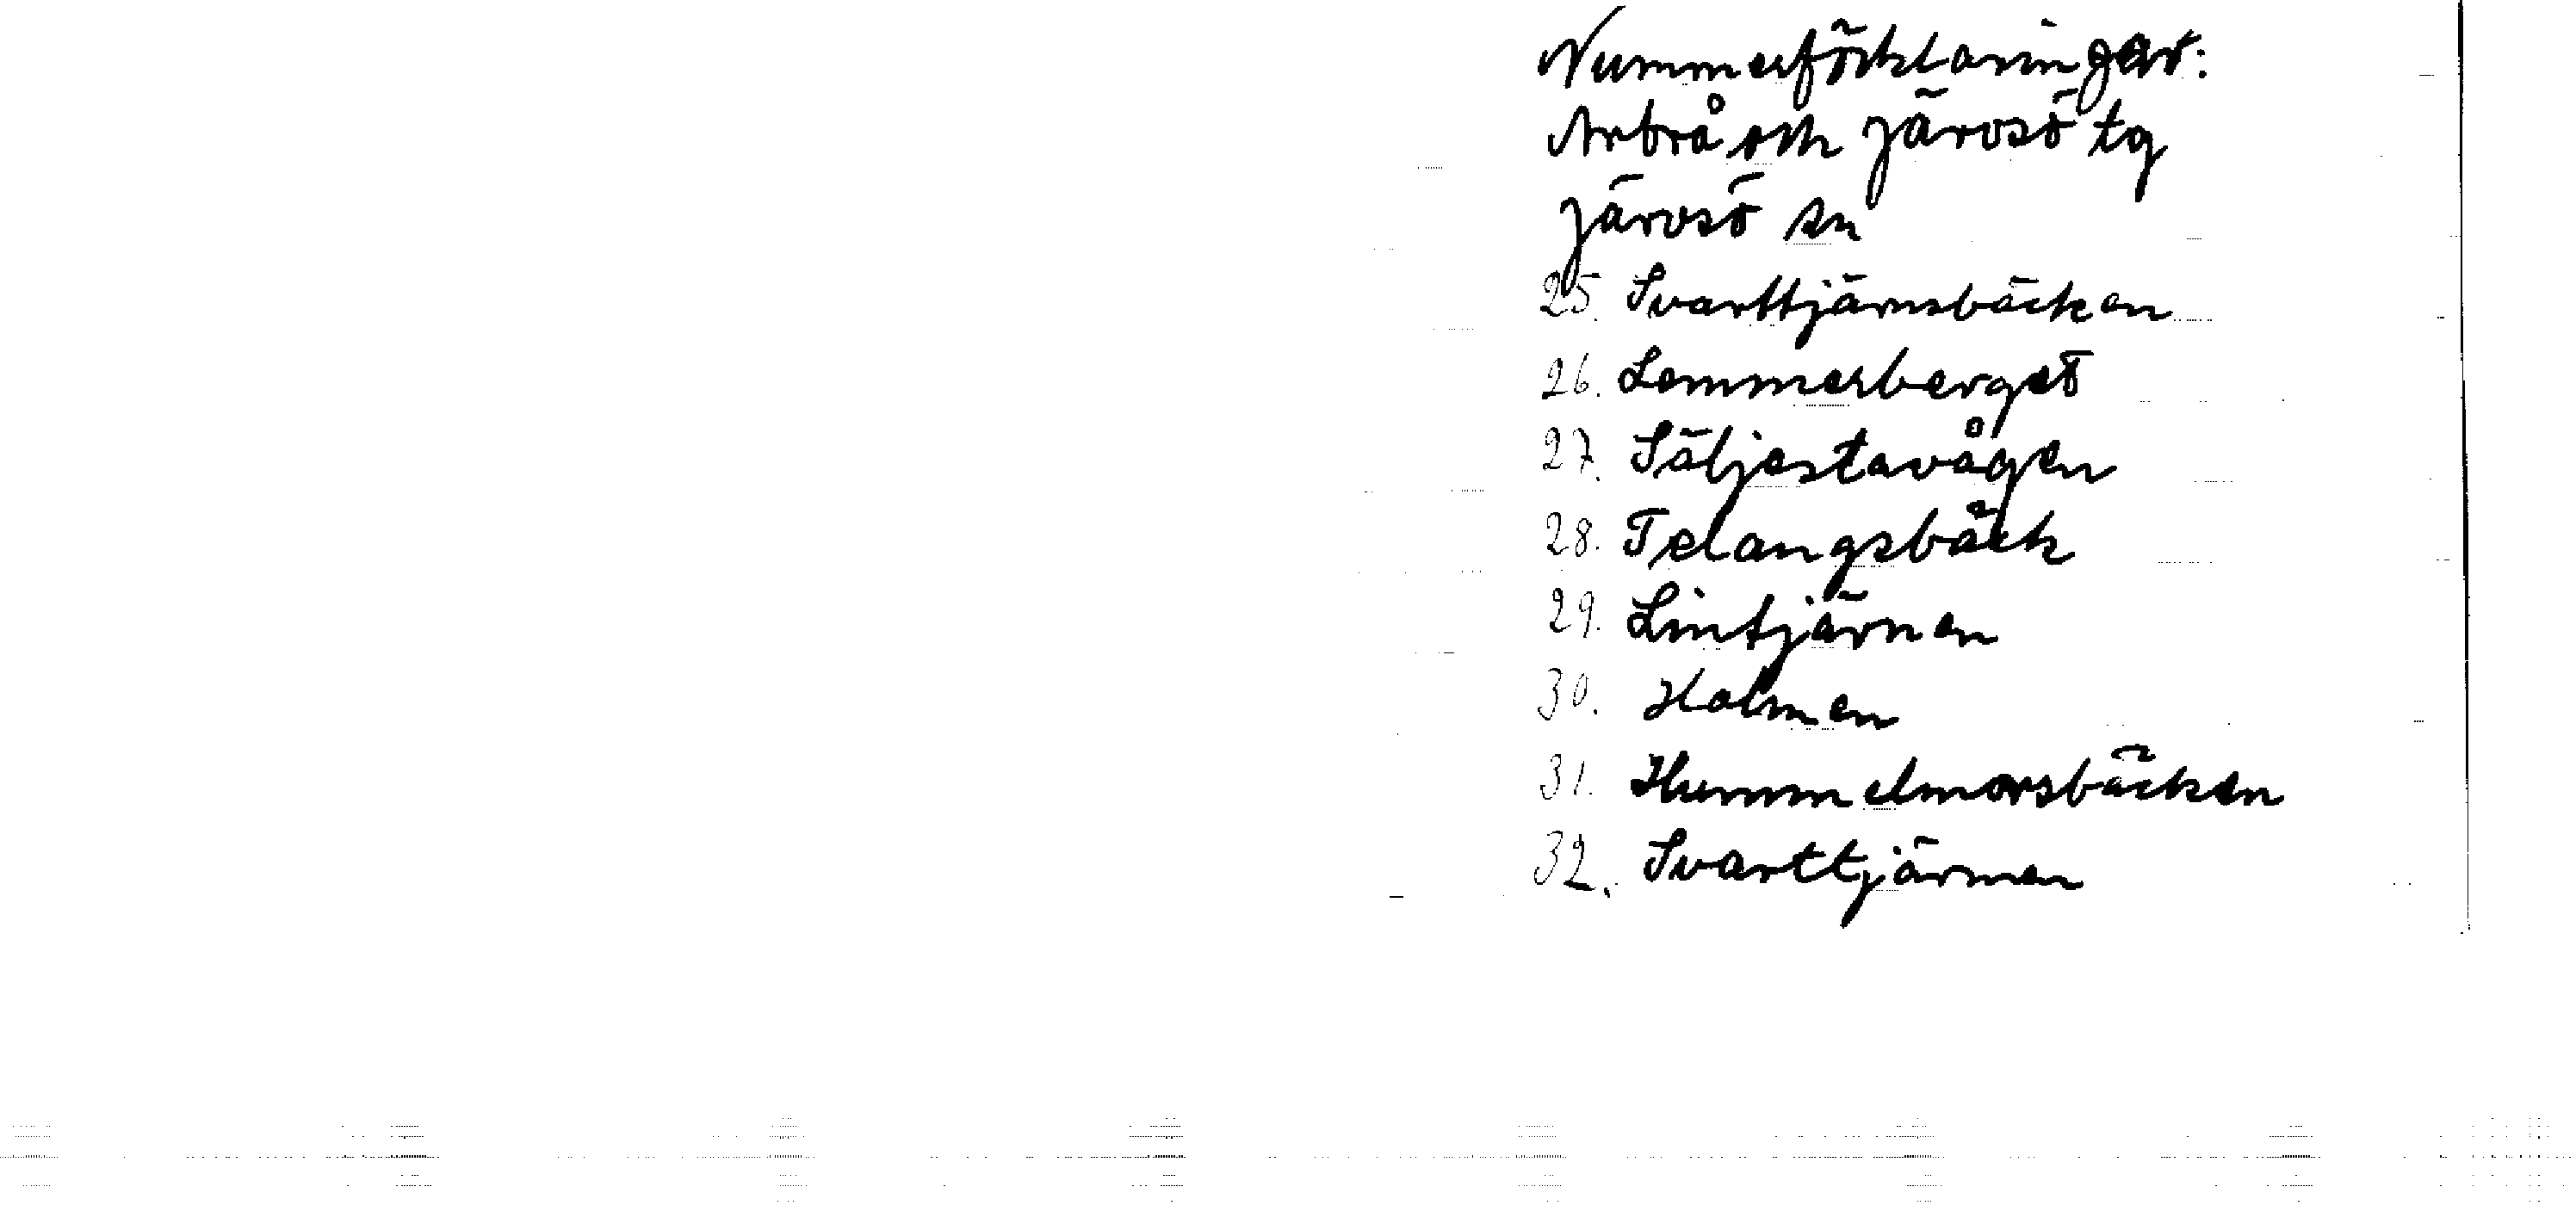 Nummerförklaringar:
Arbrå och Järvsö tg
Järvsö sn
25. Svarttjärnsbäcken
26. Lommerberget
27. Säljestavågen
28. Telangsbäck
29. Lintjärnen
30. Holmen
31. Hummelmorsbäcken
32. Svarttjärnen